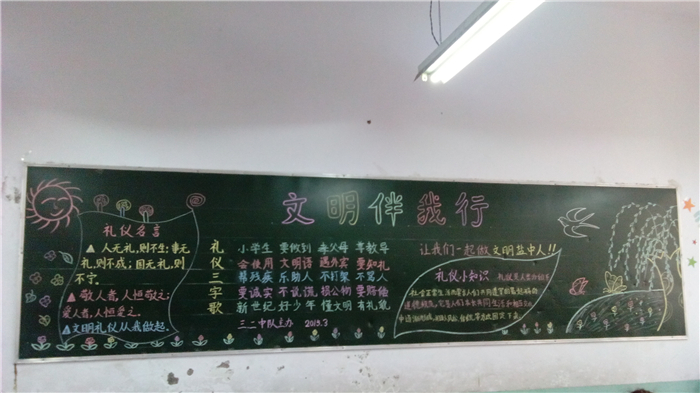 文明伴我行
礼仪名言
▲人无礼,则不生;事无
礼,则不成;国无礼,则
不宁。
▲敬人者,人恒敬之;
爱人者,人恒爱之。
▲文明礼仪从我做起。
礼仪三字歌
小学生 要做到 孝父母 尊教导
会使用 文明语 遇外宾 要知礼
帮残疾 乐助人 不打架 不骂人
要诚实 不说谎 损公物 要赔偿
新世纪 好少年 懂文明 有礼貌
三二中队主办 2015.3
让我们一起做文明盐中人!!
礼仪小知识